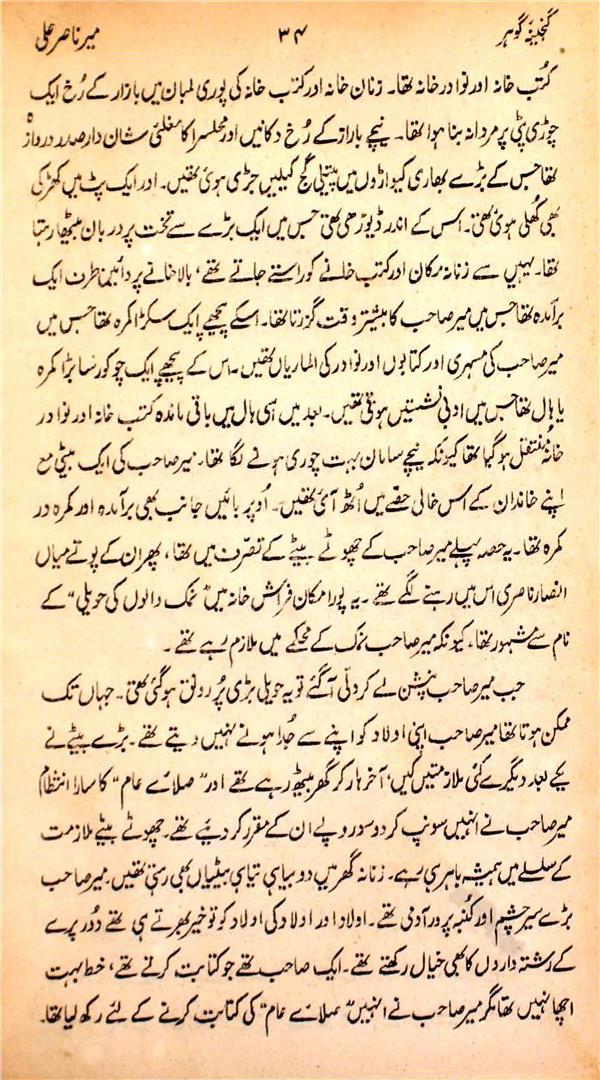 گنجینۂ گوہر ۳۴ میر ناصر علی
کتب خانہ اور نوادر خانہ تھا۔ زنان خانہ اور کتب خانہ کی پوری لمبان میں بازار کے رُخ ایک
چوڑی پٹی پر مردانہ بنا ہوا تھا۔ نیچے بازار کے رُخ دکانیں اور محلسرا کا مغلئی شان دار صدر دروازہ
تھا جس کے بڑے بھاری کیواڑوں میں پیتیلی گچ کیلیں جڑی ہوئی تھیں۔ اور ایک پٹ میں کھڑکی
بھی کُھلی ہوئی تھی۔ اس کے اندر ڈیوڑھی تھی جس میں ایک بڑے سے تخت پر دربان بیٹھا رہتا
تھا۔ یہیں سے زنانہ مکان اور کتب خانے کو راستے جاتے تھے، بالاخانے پر دائیں طرف ایک
برآمدہ تھا جس میں میر صاحب کا بیشتر وقت گزرتا تھا۔ اسکے پیچھے ایک سکڑا کمرہ تھا جس میں
میر صاحب کی مسہری اور کتابوں اور نوادر کی الماریاں تھیں۔ اس کے پیچھے ایک چوکور سا بڑا کمرہ
یا ہال تھا جس میں ادبی نشستیں ہوتی تھیں۔ بعد میں ہی ہال میں باقی ماندہ کتب خانہ اور نوادر
خانہ منتقل ہو گیا تھا کیونکہ نیچے سامان بہت چوری ہونے لگا تھا۔ میر صاحب کی ایک بیٹی مع
اپنے خاندان کے اس خالی حصّے میں اُٹھ آئی تھیں۔ اُوپر بائیں جانب بھی برآمدہ اور کمرہ در
کمرہ تھا۔ یہ حصہ پہلے میر صاحب کے چھوٹے بیٹے کے تصرّف میں تھا، پھر ان کے پوتے میاں
انصار ناصری اس میں رہنے لگے تھے۔ یہ پورا مکان فراش خانہ میں "نمک والوں کی حویلی" کے
نام سے مشہور تھا، کیونکہ میر صاحب نمک کے محکمے میں ملازم رہے تھے۔
جب میر صاحب پنشن لے کر دلّی آگئے تو یہ حویلی بڑی پُر رونق ہو گئی تھی۔ جہاں تک
ممکن ہوتا تھا میر صاحب اپنی اولاد کو اپنے سے جُدا ہونے نہیں دیتے تھے۔ بڑے بیٹے نے
یکے بعد دیگرے کئی ملازمتیں کیں، آخر ہار کر گھر بیٹھ رہے تھے اور "صلائے عام" کا سارا انتظام
میر صاحب نے انہیں سونپ کر دو سو روپے ان کے مقرر کر دیئے تھے۔ چھوٹے بیٹے ملازمت
کے سلسلے میں ہمیشہ باہر ہی رہے۔ زنانہ گھر میں دو بیاہی تیاہی بیٹیاں بھی رہتی تھیں۔ میر صاحب
بڑے سیر چشم اور کُنبہ پرور آدمی تھے۔ اولاد اور اولاد کی اولاد کو تو خیر بھرتے ہی تھے دُور پرے
کے رشتہ داروں کا بھی خیال رکھتے تھے۔ ایک صاحب تھے جو کتابت کرتے تھے، خط بہت
اچھا نہیں تھا مگر میر صاحب نے انہیں "صلائے عام" کی کتابت کرنے کے لئے رکھ لیا تھا۔